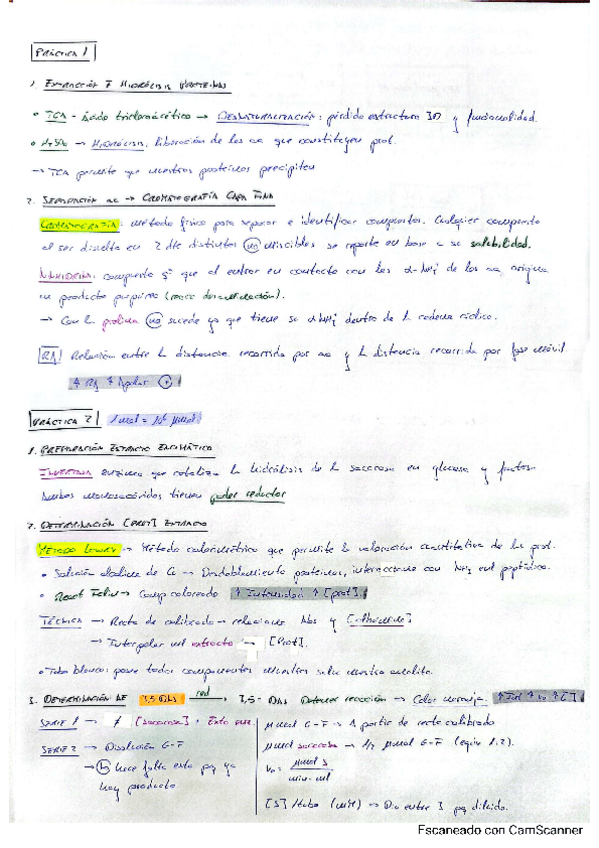 PRÁCTICA 1
1. EXTRACCIÓN E HIDRÓLISIS PROTEÍNAS
• TCA - Ácido tricloroacético → DESNATURALIZACIÓN: pérdida estructura 3D y funcionalidad.
→ HIDRÓLISIS: liberación de los aa que constituyen prot.
→ TCA permite que nuestras proteínas precipiten
2. SEPARACIÓN aa → CROMATOGRAFÍA CAPA FINA
CROMATOGRAFÍA: método físico para separar e identificar compuestos. Cualquier compuesto
al ser disuelto en 2 dtes distintos no miscibles se reparte en base a su solubilidad.
NINHIDRINA: compuesto que al entrar en contacto con los de los aa origina
un producto púrpura
→ Con la prolina no sucede ya que tiene su dentro de la cadena cíclica.
Rf Relación entre la distancia recorrida por aa y la distancia recorrida por fase móvil.
↑ Rf ↑ Apolar
PRÁCTICA 2 1 mol = 10⁶ μmol
1. PREPARACIÓN EXTRACTO ENZIMÁTICO
INVERTASA enzima que cataliza la hidrólisis de la sacarosa en glucosa y fructosa
Ambos monosacáridos tienen poder reductor
2. DETERMINACIÓN [PROT] EXTRACTO
MÉTODO LOWRY → Método colorimétrico que permite la valoración cuantitativa de las prot.
• Solución alcalina de Cu → Desdoblamiento proteínas, interacciona con enl peptídico.
• React Folin → Comp coloreado ↑ Intensidad ↑ [prot].
TÉCNICA → Recta de calibrado → relaciona Abs y [albúmina]
→ Interpolar extracto → [Prot].
• Tubo blanco: posee todos componentes nuestra muestra
3. DETERMINACIÓN DE 3,5 DNS red → 3,5- Detener reacción → Color naranja.
SERIE 1 → [sacarosa].
SERIE 2 → Disolución G-F
→ hace falta esto pq ya
hay producto
μmol G-F → A partir de recta calibrado
μmol sacarosa → 1/2 μmol G-F
V₀ = μmol S / min·ml
[S] tubo (mM) → entre 3 pq diluido.
Escaneado con CamScanner